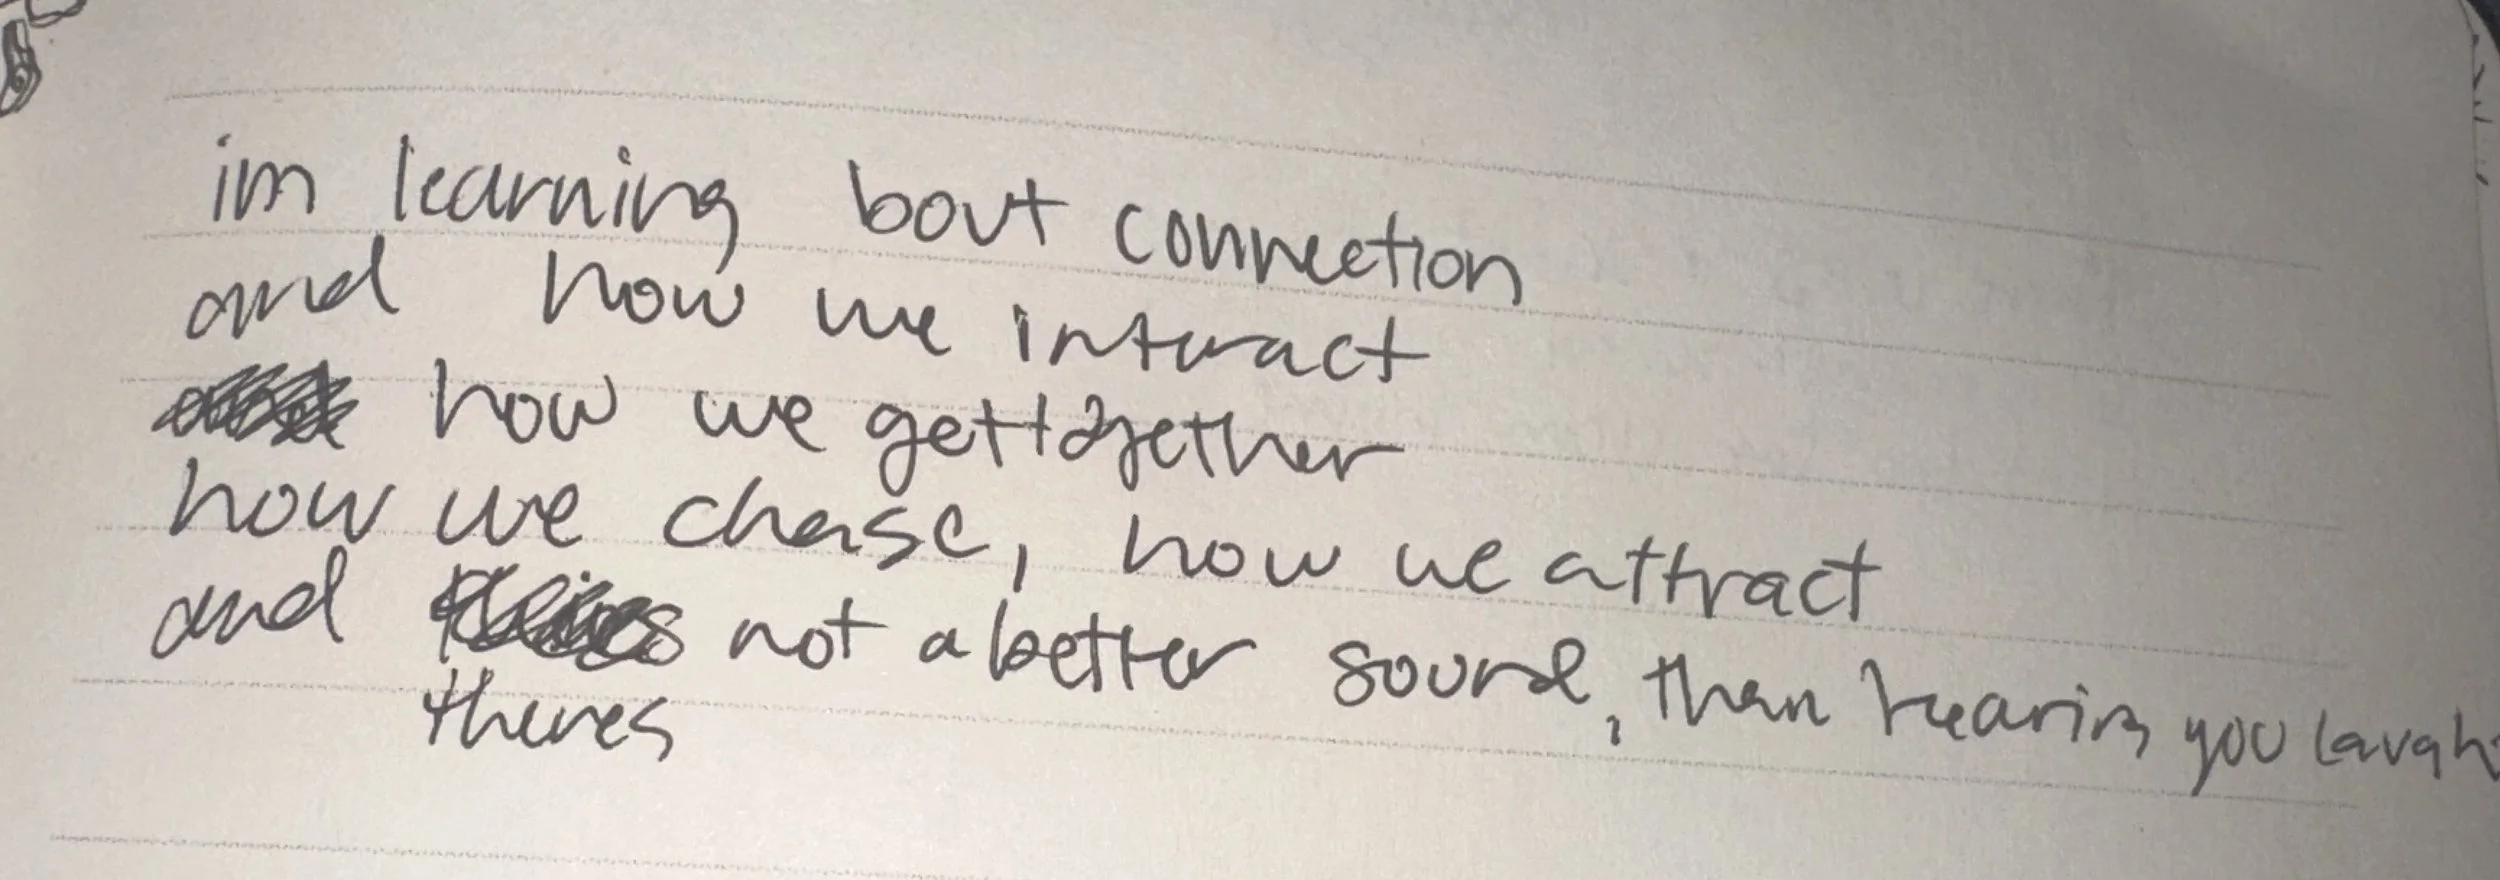 im learning bout connection
and how we interact
how we get together
how we chase, how we attract
and not a better sound, than hearing you laugh
theres